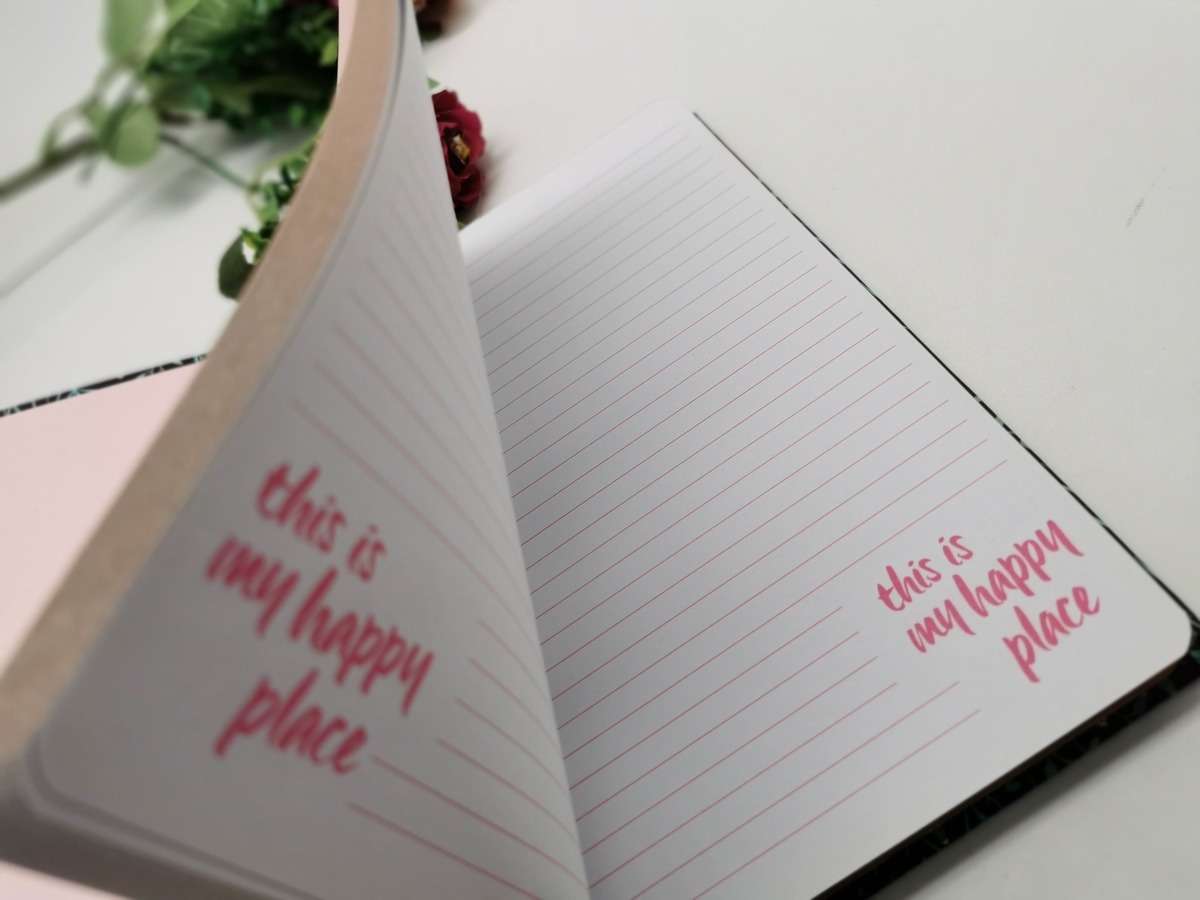 this is
my happy
place
this is
my happy
place